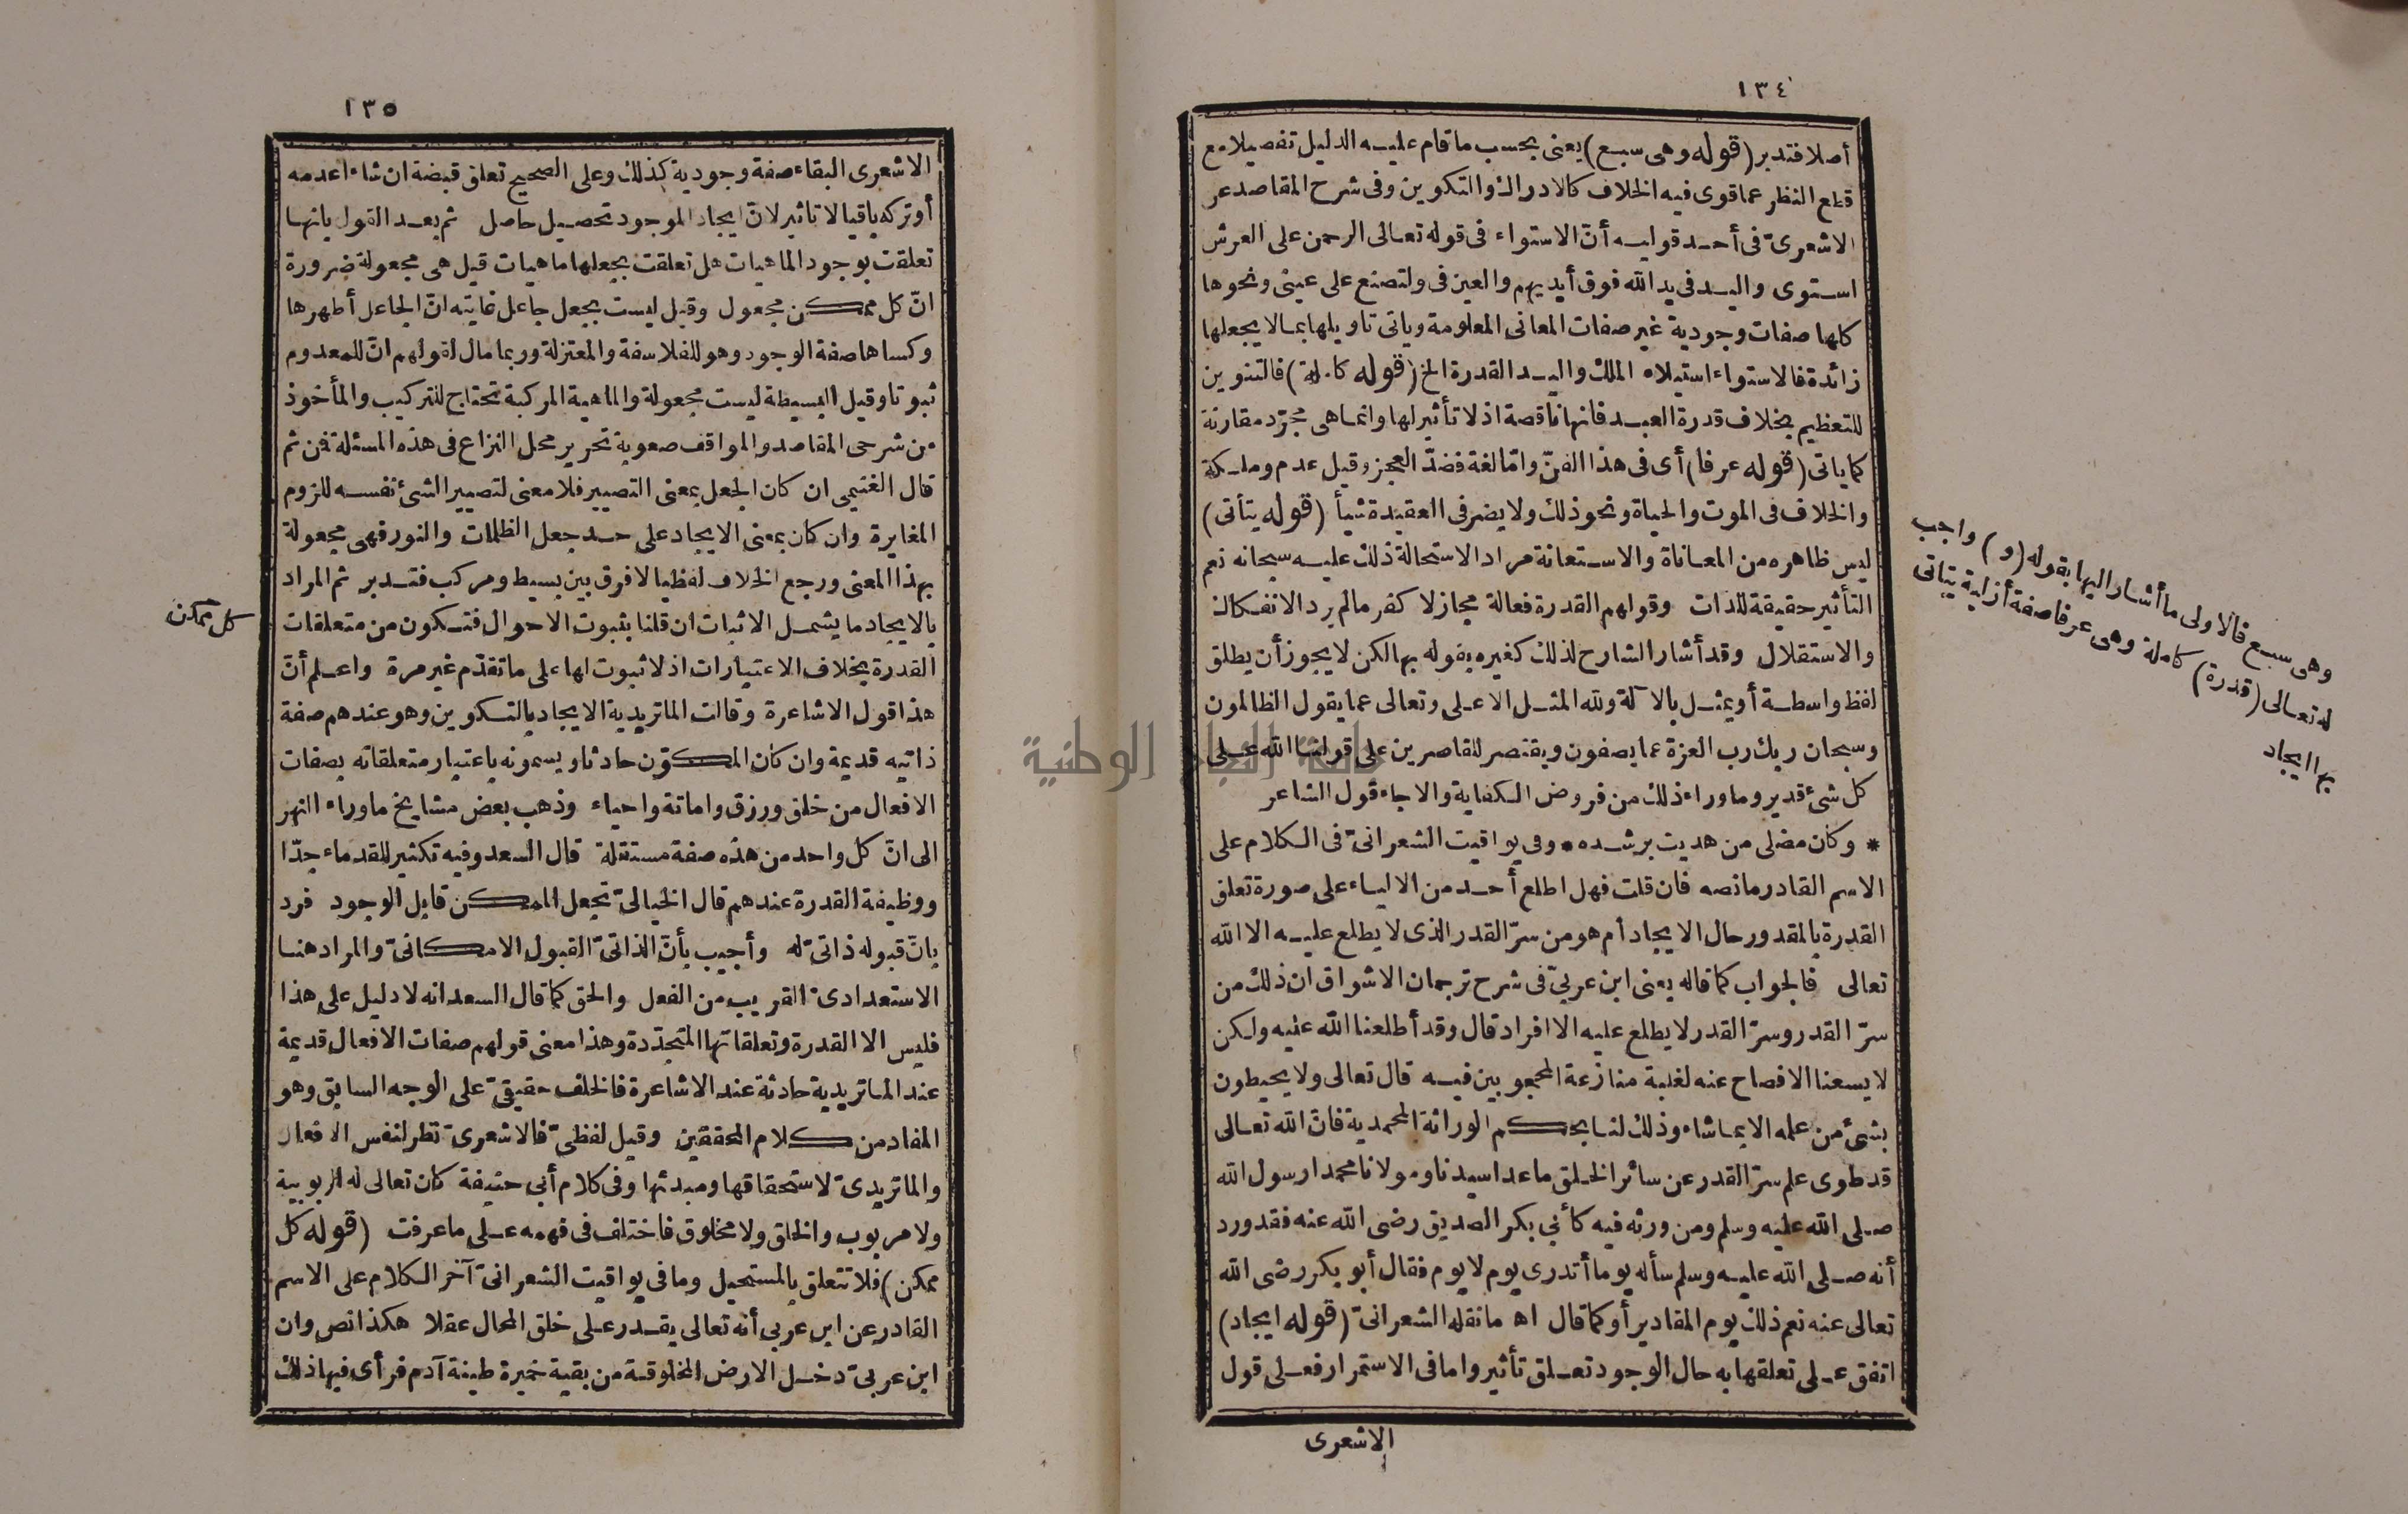 ١٣٤
أصلا فتدبر (قوله وهى سبع) يعنى بحسب ما قام عليه الدليل تفصيلا مع
قطع النظر عما قوى فيه الخلاف كالادراك والتكوين وفى شرح المقاصد عن
الاشعرىّ فى أحد قوليه أنّ الاستواء فى قوله تعالى الرحمن على العرش
استوى واليد فى يد الله فوق أيديهم والعين فى ولتصنع على عينى ونحوها
كلها صفات وجودية غير صفات المعانى المعلومة وياتى تاويلها بما لا يجعلها
زائدة فالاستواء استيلاء الملك واليد القدرة الخ (قوله كاملة) فالتنوين
للتعظيم بخلاف قدرة العبد فانها ناقصة اذ لا تأثير لها وانما هى مجرّد مقارنة
كما ياتى (قوله عرفا) أى فى هذا الفنّ وامّا لغة فضدّ العجز وقيل عدم وملكة
والخلاف فى الموت والحياة ونحو ذلك ولا يضر فى العقيدة شيأ (قوله يتأتى)
ليس ظاهره من المعاناة والاستعانة مراد الاستحالة ذلك عليه سبحانه نعم
التأثير حقيقة للذات وقولهم القدرة فعالة مجاز لا كفر ما لم يرد الانفكاك
والاستقلال وقد أشار الشارح لذلك كغيره بقوله بها لكن لا يجوز أن يطلق
لفظ واسطة أو يمثل بالآلة ولله المثل الاعلى وتعالى عما يقول الظالمون
وسبحان ربك رب العزة عما يصفون ويقتصر للقاصرين على قولنا الله على
كل شئ قدير وما وراء ذلك من فروض الكفاية والا جاء قول الشاعر
* وكان مضلى من هديت برشده * وفى يواقيت الشعرانىّ فى الكلام على
الاسم القادر ما نصه فان قلت فهل اطلع أحد من الاولياء على صورة تعلق
القدرة بالمقدور حال الايجاد أم هو من سرّ القدر الذى لا يطلع عليه الا الله
تعالى فالجواب كما قاله يعنى ابن عربىّ فى شرح ترجمان الاشواق ان ذلك من
سرّ القدر وسرّ القدر لا يطلع عليه الا افراد قال وقد أطلعنا الله عليه ولكن
لا يسعنا الافصاح عنه لغلبة منازعة المحجوبين فيه قال تعالى ولا يحيطون
بشئ من علمه الا بما شاء وذلك لنا بحكم الوراثة المحمدية فانّ الله تعالى
قد طوى علم سرّ القدر عن سائر الخلق ما عدا سيدنا ومولانا محمدا رسول الله
صلى الله عليه وسلم ومن ورثه فيه كأبى بكر الصديق رضى الله عنه فقد ورد
أنه صلى الله عليه وسلم سأله يوما أتدرى يوم لا يوم فقال أبو بكر رضى الله
تعالى عنه نعم ذلك يوم المقادير أو كما قال اه ما نقله الشعرانىّ (قوله ايجاد)
اتفق على تعلقها به حال الوجود تعلق تأثير واما فى الاستمرار فعلى قول
الاشعرى
وهى سبع فالاولى ما أشار اليها بقوله (و) واجب
له تعالى (قدرة) كاملة وهى عرفا صفة أزلية يتاتى
بها ايجاد
١٣٥
الاشعرى البقاء صفة وجودية كذلك وعلى الصحيح تعلق قبضة ان شاء اعدمه
أو تركه باقيا لا تاثير لانّ ايجاد الموجود تحصيل حاصل ثم بعد القول بانها
تعلقت بوجود الماهيات هل تعلقت بجعلها ماهيات قيل هى مجعولة ضرورة
انّ كل ممكن مجعول وقيل ليست بجعل جاعل غايته انّ الجاعل أظهرها
وكساها صفة الوجود وهو للفلاسفة والمعتزلة وربما مال لقولهم انّ للمعدوم
ثبوتا وقيل البسيطة ليست مجعولة والماهية المركبة تحتاج للتركيب والمأخوذ
من شرحى المقاصد والمواقف صعوبة تحرير محل النزاع فى هذه المسئلة فمن ثم
قال الغنيمى ان كان الجعل بمعنى التصيير فلا معنى لتصيير الشئ نفسه للزوم
المغايرة وان كان بمعنى الايجاد على حد جعل الظلمات والنور فهى مجعولة
بهذا المعنى ورجع الخلاف لفظيا لا فرق بين بسيط ومركب فتدبر ثم المراد
بالايجاد ما يشمل الاثبات ان قلنا بثبوت الاحوال فتكون من متعلقات
القدرة بخلاف الاعتبارات اذ لا ثبوت لها على ما تقدّم غير مرة واعلم أنّ
هذا قول الاشاعرة وقالت الماتريدية الايجاد بالتكوين وهو عندهم صفة
ذاتيه قديمة وان كان المكوّن حادثا ويسمونه باعتبار متعلقاته بصفات
الافعال من خلق ورزق واماتة واحياء وذهب بعض مشايخ ما وراء النهر
الى انّ كل واحد من هذه صفة مستقلة قال السعد وفيه تكثير للقدماء جدّا
ووظيفة القدرة عندهم قال الخيالىّ تجعل الممكن قابل الوجود فرد
بانّ قبوله ذاتىّ له وأجيب بأنّ الذاتىّ القبول الامكانىّ والمراد هنا
الاستعدادىّ القريب من الفعل والحق كما قال السعد انه لا دليل على هذا
فليس الا القدرة وتعلقاتها المتجدّدة وهذا معنى قولهم صفات الافعال قديمة
عند الماتريدية حادثة عند الاشاعرة فالخلف حقيقىّ على الوجه السابق وهو
المفاد من كلام المحققين وقيل لفظىّ فالاشعرىّ نظر لنفس الافعال
والماتريدىّ لاستحقاقها ومبدئها وفى كلام أبى حنيفة كان تعالى له الربوبية
ولا مربوب والخلق ولا مخلوق فاختلف فى فهمه على ما عرفت (قوله كل
ممكن) فلا تتعلق بالمستحيل وما فى يواقيت الشعرانىّ آخر الكلام على الاسم
القادر عن ابن عربى أنه تعالى يقدر على خلق المحال عقلا هكذا نص وان
ابن عربىّ دخل الارض المخلوقة من بقية خميرة طينة آدم فرأى فيها ذلك
كل ممكن
الوطنية